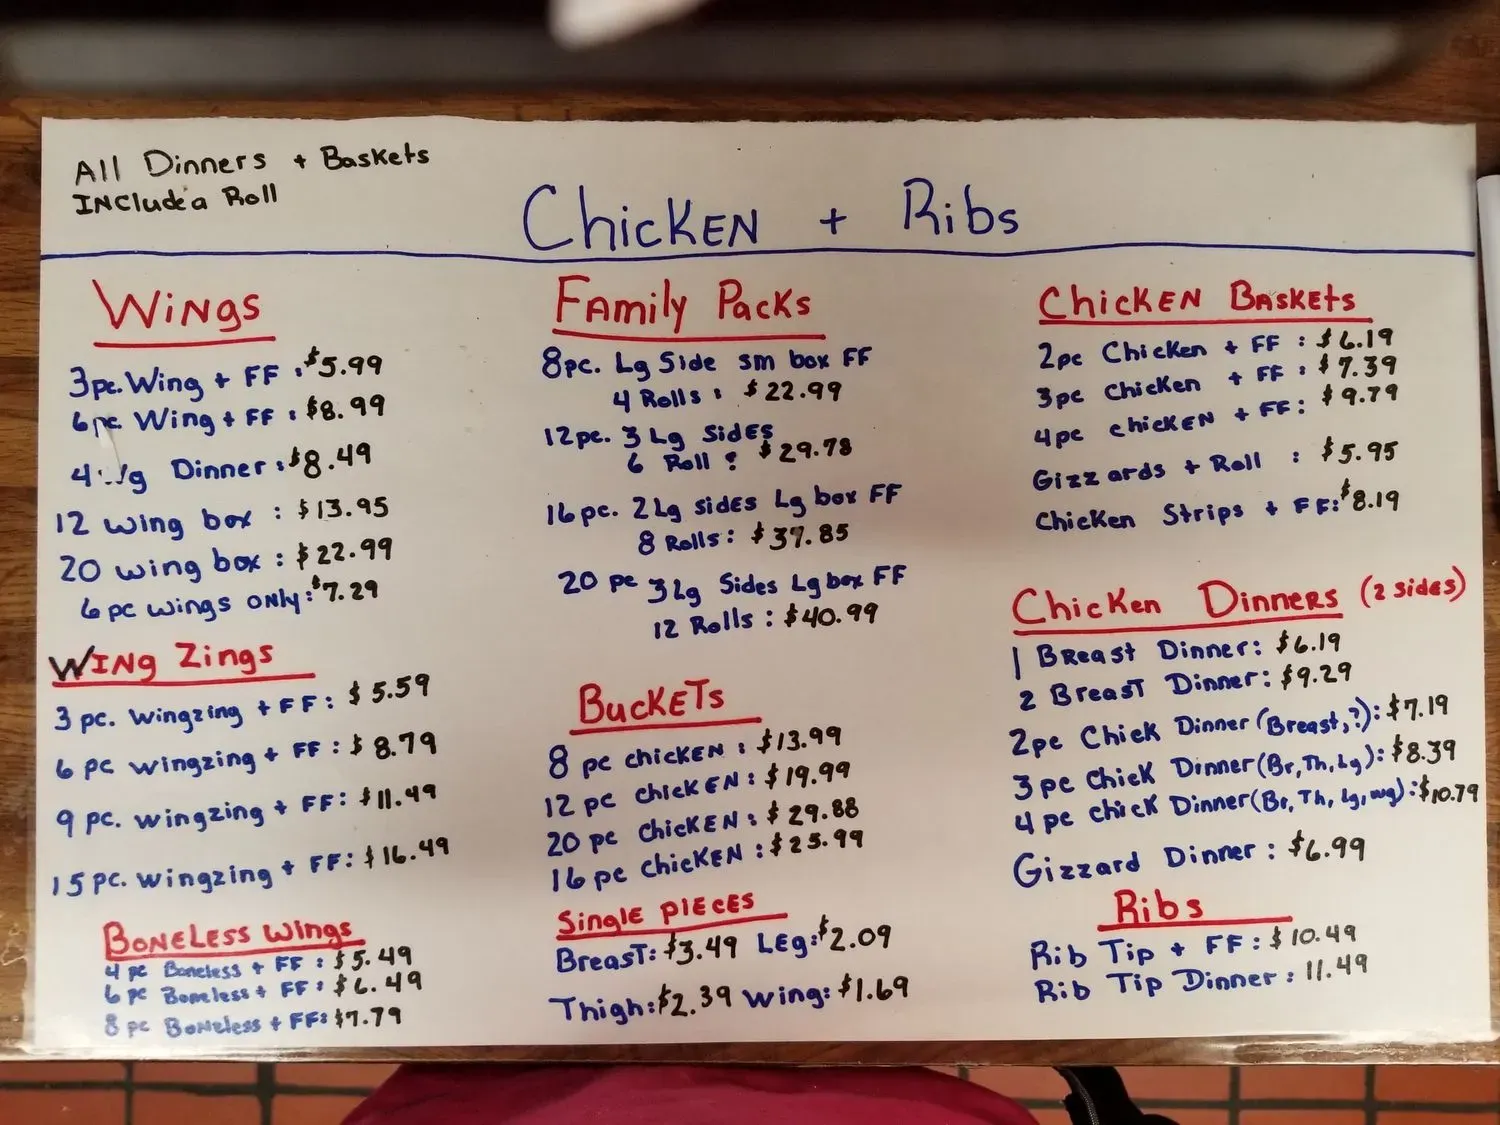 All Dinners + Baskets
INCludea Roll
ChicKEN + Ribs
WiNgs
3pc. Wing + FF : $5.99
6 pc Wing + FF : $8.99
4 Dinner : $8.49
12 wing box : $13.95
20 wing box : $22.99
6 pc wings only: $7.29
WINg Zings
3 pc. wingzing + FF: $5.59
6 pc wingzing + FF : $8.79
9 pc. wingzing + FF: $11.49
15 pc. wingzing + FF: $16.49
BONELESS WiNgs
4 pc Boneless + FF : $5.49
6 pc Boneless + FF : $6.49
8 pc Boneless + FF: $7.79
FAmily Packs
8pc. Lg Side sm box FF
4 Rolls : $22.99
12pc. 3 Lg SidES
6 Roll : $29.78
16 pc. 2 Lg sidEs Lg box FF
8 Rolls: $37.85
20 pc 3 Lg Sides Lg box FF
12 Rolls : $40.99
BuckETs
8 pc chicKEN : $13.99
12 pc chicKEN : $19.99
20 pc chicKEN : $29.88
16 pc chicKEN : $25.99
SinglE PIECES
BreasT: $3.49 LEg: $2.09
Thigh: $2.39 wing: $1.69
ChicKEN BaskEts
2pc Chicken + FF : $6.19
3pc Chicken + FF : $7.39
4pc chicKEN + FF: $9.79
Gizzards + Roll : $5.95
Chicken Strips + FF: $8.19
Chicken DinnERs (2 sides)
1 BReast Dinner: $6.19
2 BreasT Dinner: $9.29
2pc Chick Dinner (Breast,?): $7.19
3 pc Chick Dinner (Br, Th, Lg): $8.39
4 pc chick Dinner (Br, Th, Lg, wg): $10.79
Gizzard Dinner : $6.99
Ribs
Rib Tip + FF : $10.49
Rib Tip Dinner : 11.49